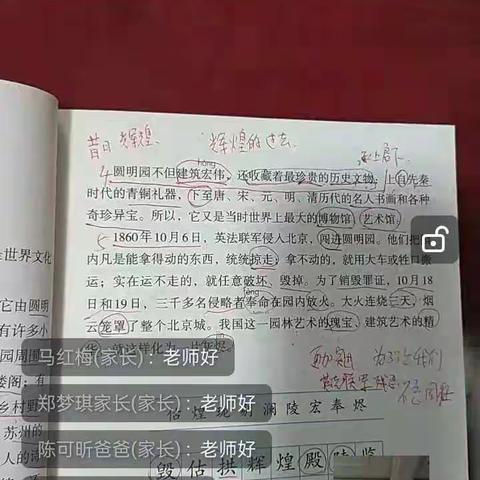 昔日辉煌
辉煌的过去
承上启下
hóng
4 圆明园不但建筑宏伟，还收藏着最珍贵的历史文物：上自先秦
时代的青铜礼器，下至唐、宋、元、明、清历代的名人书画和各种
奇珍异宝。所以，它又是当时世界上最大的博物馆、艺术馆。
5 1860年10月6日，英法联军侵入北京，闯进圆明园。他们把
内凡是能拿得动的东西，统统掠走；拿不动的，就用大车或牲口搬
运；实在运不走的，就任意破坏、毁掉。为了销毁罪证，10月18
日和19日，三千多名侵略者奉命在园内放火。大火连烧三天，烟
云笼罩了整个北京城。我国这一园林艺术的瑰宝、建筑艺术的精
华，就这样化为一片灰烬。
世界文化
它由圆明
有许多小
园周围
楼阁；有
乡村野
苏州的
人的诗
马红梅(家长)：老师好
郑梦琪家长(家长)：老师好
陈可昕爸爸(家长)：老师好
煌 澜陵宏奉烬
毁估拱辉煌殿陵览